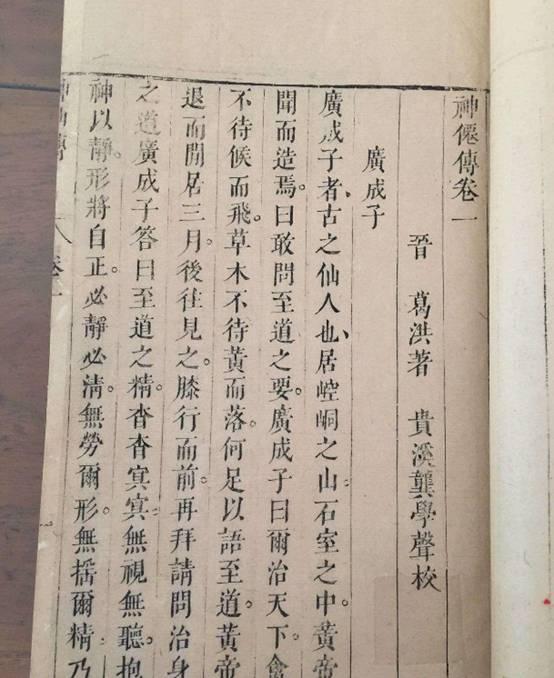 神僊傳卷一
晉 葛洪著 貴溪龔學聲校
廣成子
廣成子者、古之仙人也、居崆峒之山石室之中。黃帝
聞而造焉。曰敢問至道之要。廣成子曰爾治天下。禽
不待候而飛。草木不待黃而落。何足以語至道。黃帝
退而閒居三月。後往見之。膝行而前。再拜請問治身
之道廣成子答曰至道之精。杳杳冥冥。無視無聽。抱
神以靜。形將自正。必靜必淸。無勞爾形。無搖爾精。乃
卷一